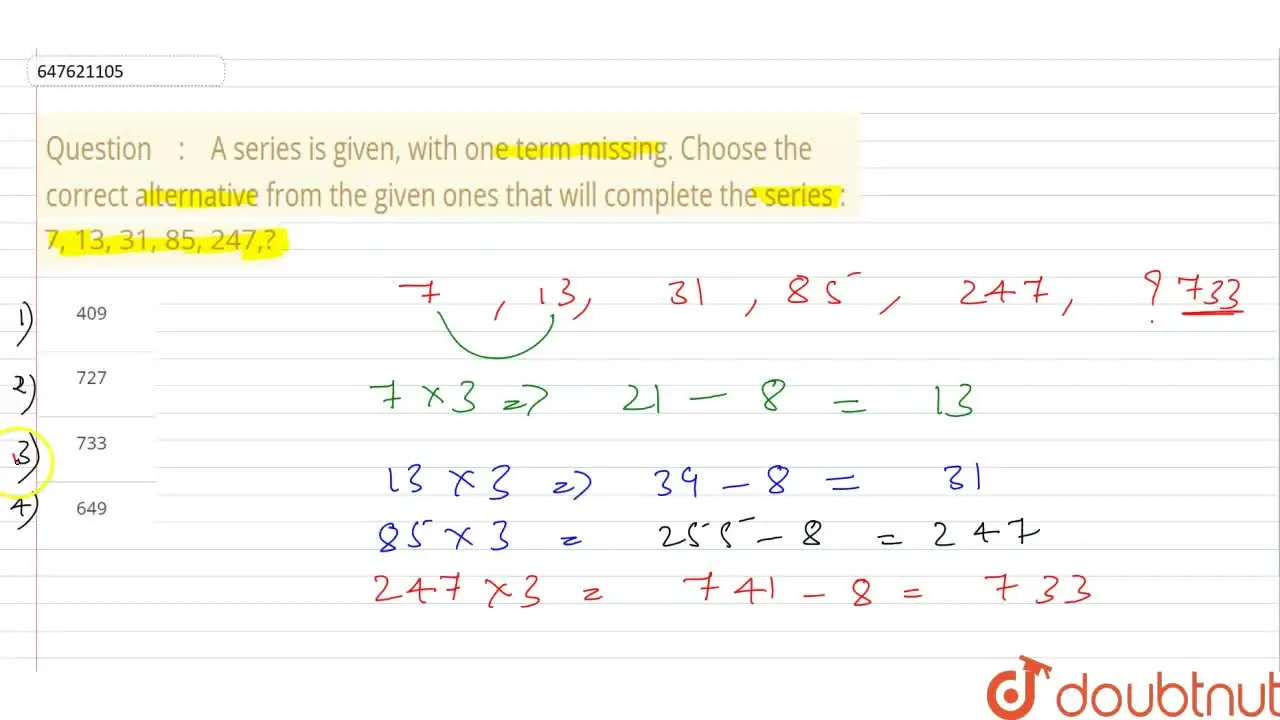 647621105
Question : A series is given, with one term missing. Choose the
correct alternative from the given ones that will complete the series :
7, 13, 31, 85, 247,?
7 , 13, 31 , 85 , 247 , ? 733
1) 409
2) 727
3) 733
4) 649
7 × 3 => 21 - 8 = 13
13 × 3 => 39 - 8 = 31
85 × 3 = 255 - 8 = 247
247 × 3 = 741 - 8 = 733
doubtnut